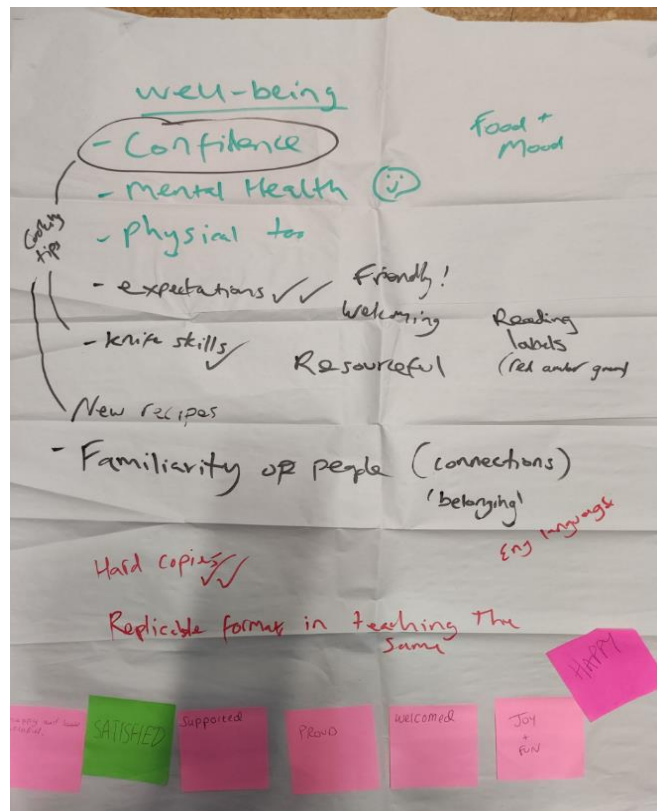 well-being
- Confidence
Food +
Mood
- mental Health
- physical too
Cooking
tips
- expectations ✓✓
Friendly!
welcoming
- knife skills ✓
Resourceful
Reading
labels
(red amber green)
New recipes
- Familiarity of people (connections)
'belonging'
Eng language
Hard copies ✓✓
Replicable format in teaching the
same
HAPPY
SATISFIED
Supported
PROUD
welcomed
JOY
+
FUN